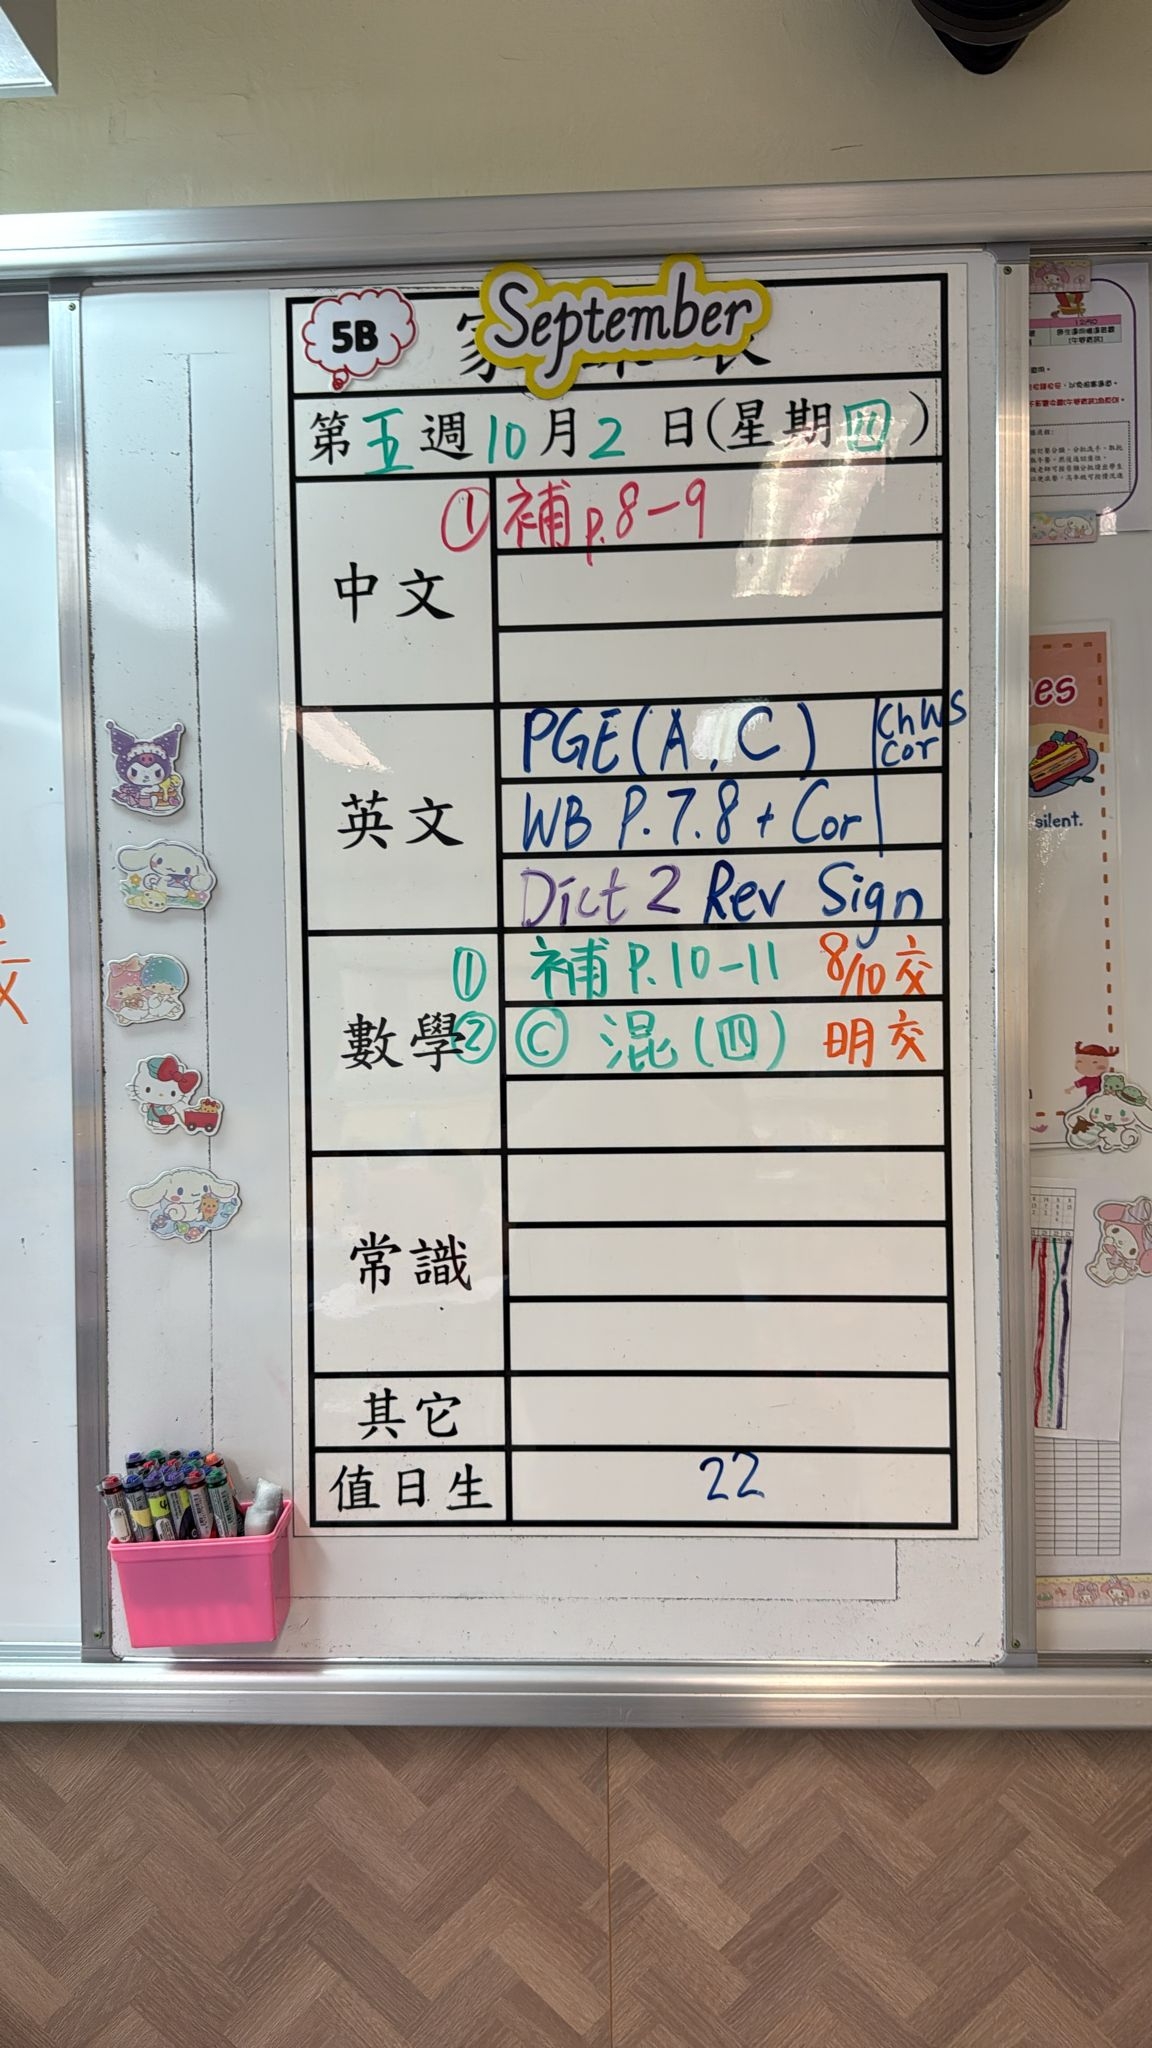 5B
September
第五週10月2日(星期四)
中文
① 補 p.8-9
英文
PGE(A,C)
ChWS
Cor
WB P.7.8 + Cor
Dict 2 Rev Sign
數學
① 補 P.10-11 8/10交
② Ⓒ 混(四) 明交
常識
其它
值日生
22
silent.